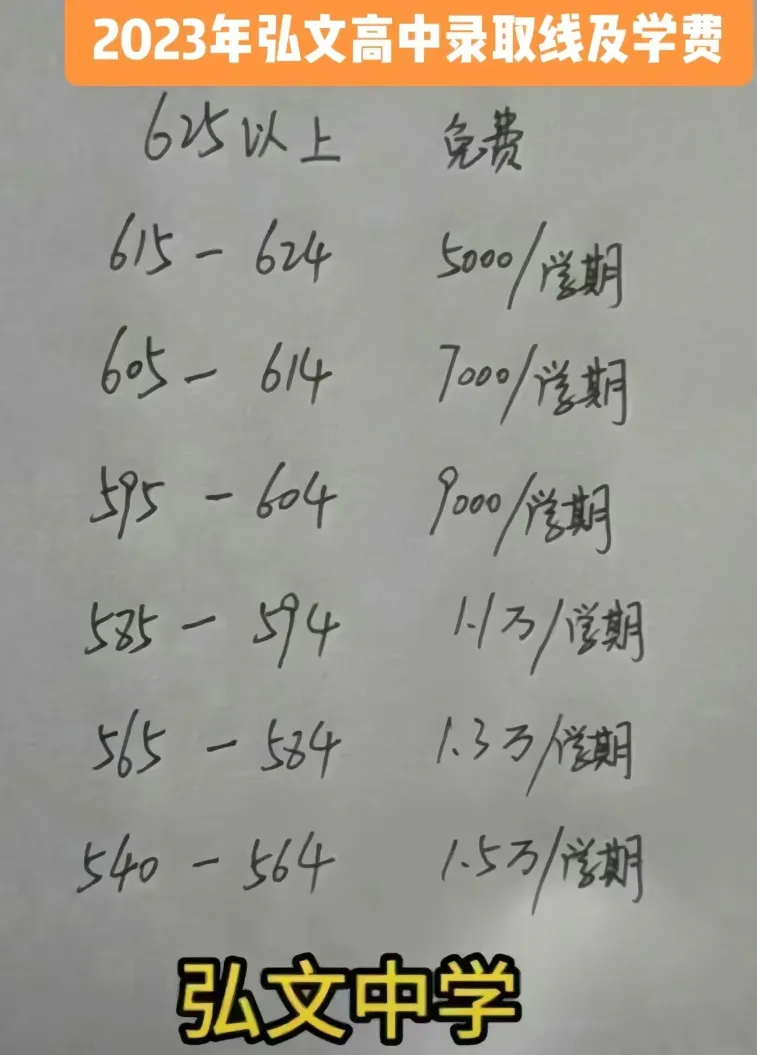 2023年弘文高中录取线及学费
625以上 免费
615-624 5000/学期
605-614 7000/学期
595-604 9000/学期
585-594 1.1万/学期
565-584 1.3万/学期
540-564 1.5万/学期
弘文中学